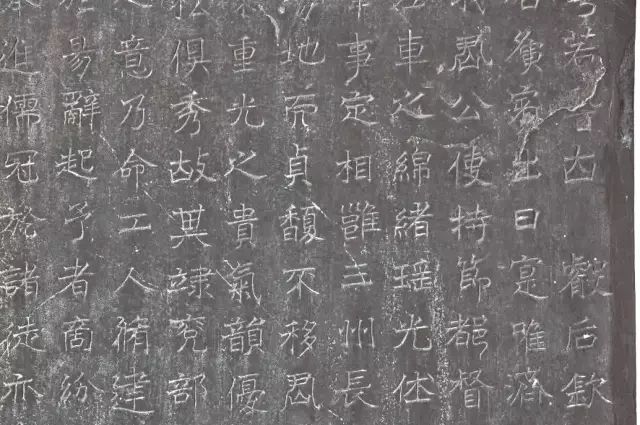 若叡后欽
出日寔唯濬
君公使持節都督
車之綿緒瑶光
事定相雖主州長
地而貞馥不移君
重光之貴氣韻優
俱秀故其究部
意乃命工人脩建
易辭起予者商紛
進儒冠於諸徒亦